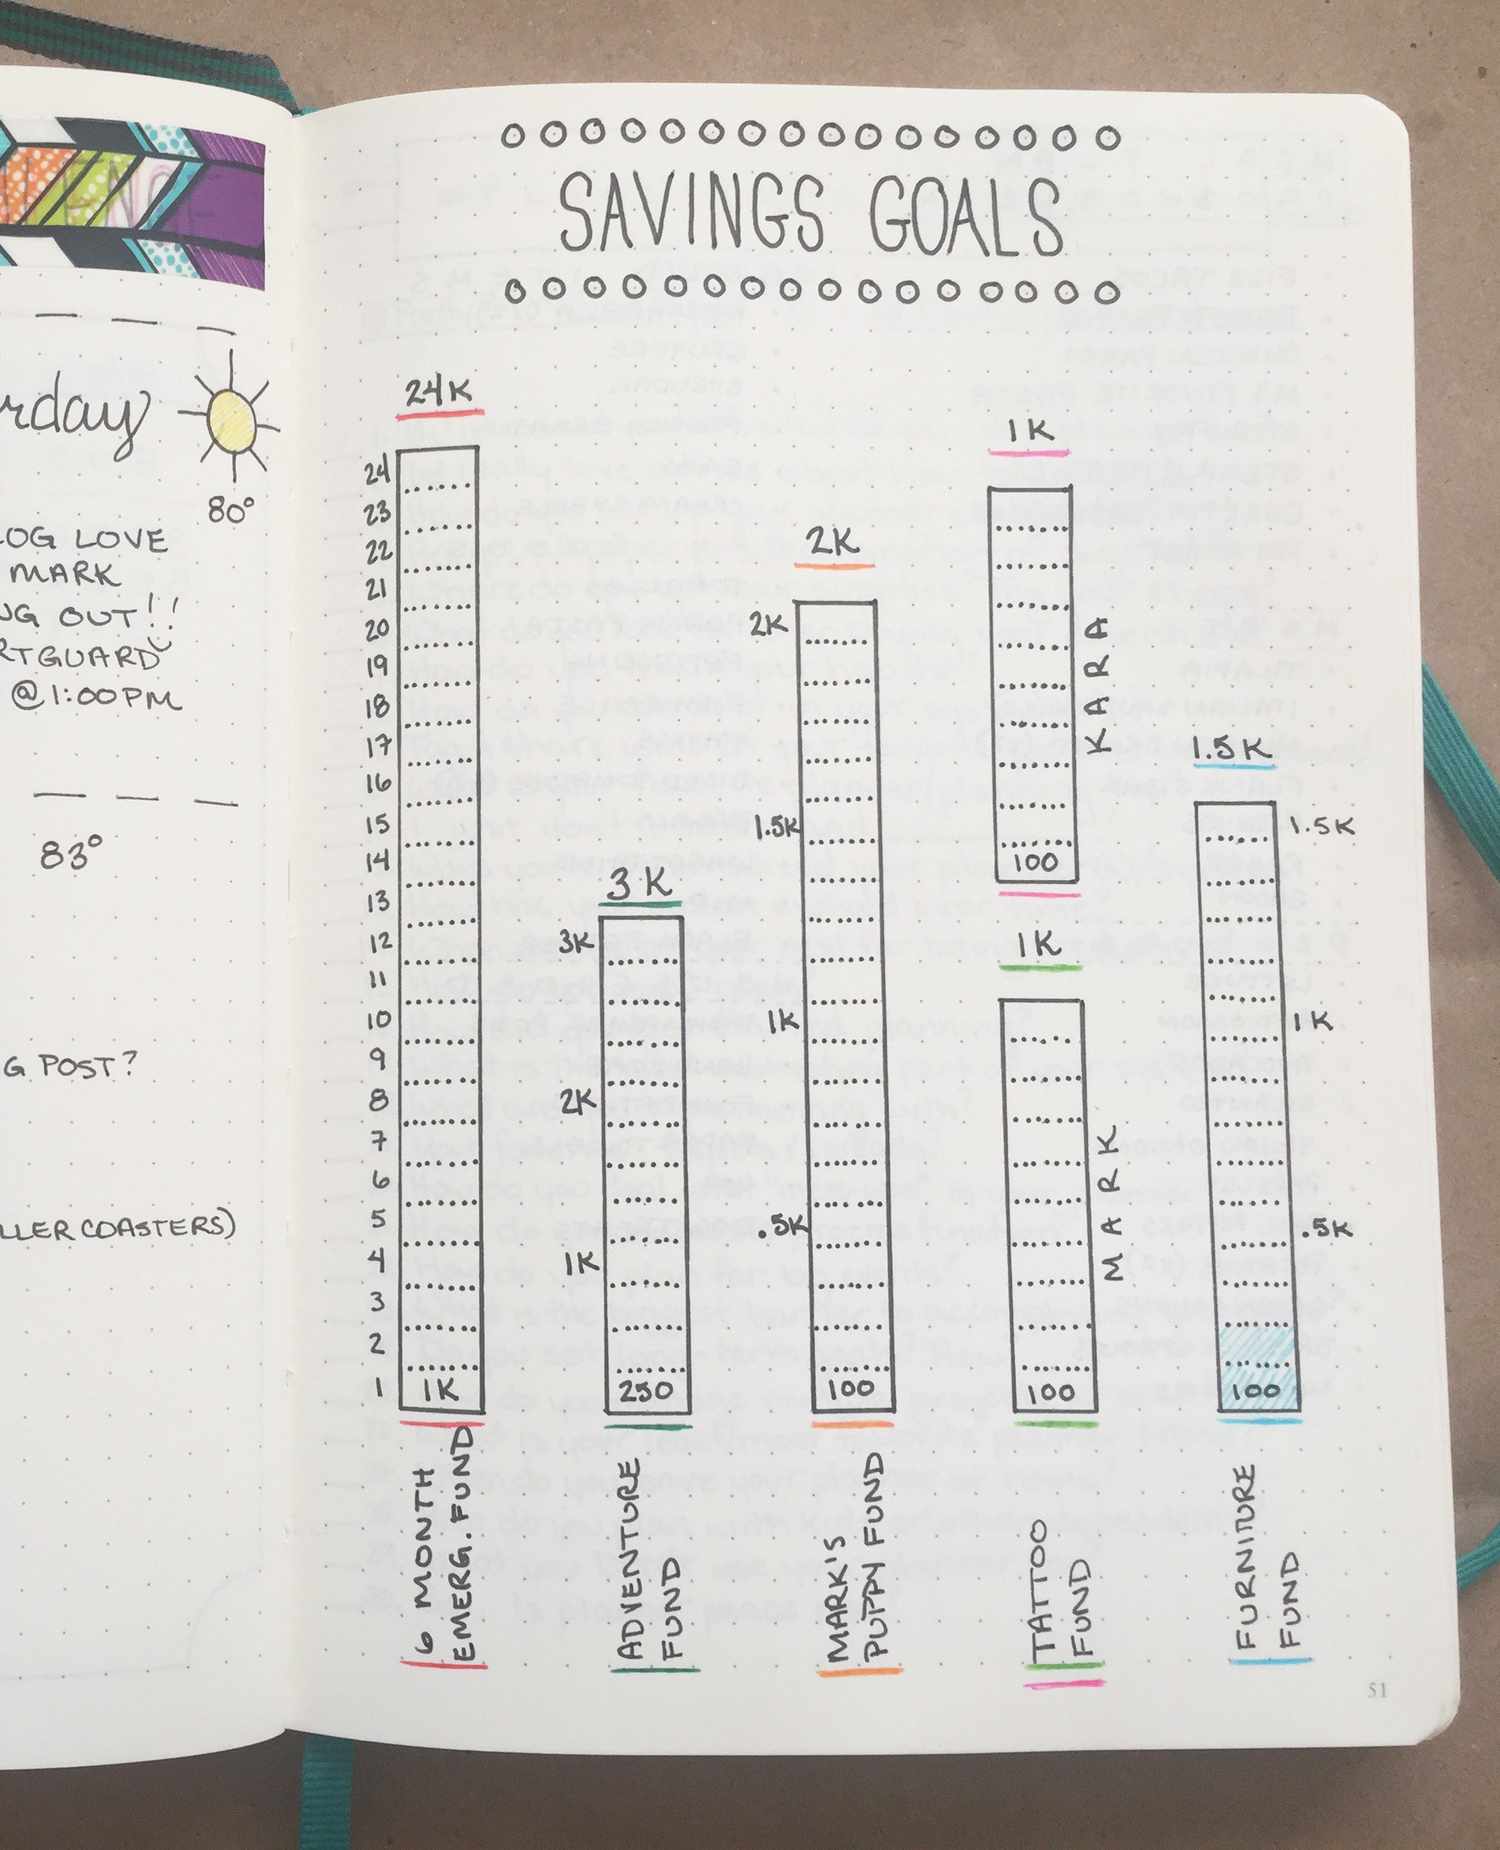 rday
80°
LOG LOVE
MARK
NG OUT!!
RTGUARD
@1:00PM
83°
G POST?
LLER COASTERS)
SAVINGS GOALS
24K
24
23
22
21
20
19
18
17
16
15
14
13
12
11
10
9
8
7
6
5
4
3
2
1
1K
6 MONTH
EMERG. FUND
3K
3K
2K
1K
250
ADVENTURE
FUND
2K
2K
1.5K
1K
.5K
100
MARK'S
PUPPY FUND
1K
KARA
100
1K
MARK
100
TATTOO
FUND
1.5K
1.5K
1K
.5K
100
FURNITURE
FUND
51